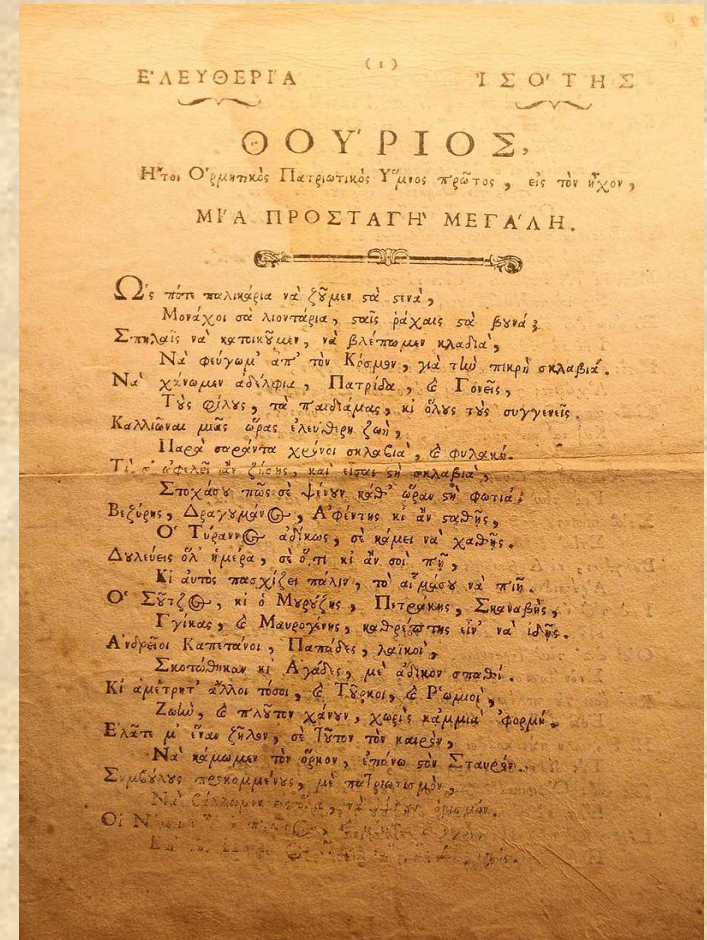 (1)
Ε᾿ΛΕΥΘΕΡΙ´Α ᾿ΙΣΟ´ΤΗΣ
ΘΟΥ´ΡΙΟΣ,
Η῎τοι Ο῾ρμητικὸς Πατριωτικὸς Υ῞μνος πρῶτος, εἰς τὸν ἦχον,
ΜΙ´Α ΠΡΟΣΤΑΓΗ` ΜΕΓΑ´ΛΗ.
Ω῾ς πότε παλικάρια νὰ ζȣ͂μεν ςὰ ςενὰ,
Μονάχοι σὰ λιοντάρια, ςαῖς ῥάχαις ςὰ βȣνά;
Σπηλαῖς νὰ κατοικȣ͂μεν, νὰ βλέπωμεν κλαδιὰ,
Νὰ φεύγωμ᾿ ἀπ᾿ τὸν Κόσμον, γιὰ τὴν πικρὴ σκλαβιά.
Νὰ χάνωμεν ἀδέλφια, Πατρίδα, ϗ Γονεῖς,
Τȣ̀ς φίλȣς, τὰ παιδιάμας, κι ὅλȣς τȣ̀ς συγγενεῖς.
Καλλιῶναι μιᾶς ὥρας ἐλεύθερη ζωὴ,
Παρὰ σαράντα χρόνοι σκλαβιὰ, ϗ φυλακή.
Τί σ᾿ ὠφελεῖ ἂν ζήσῃς, καὶ εἶσαι ςὴ σκλαβιὰ,
Στοχάσȣ πῶς σὲ ψένȣν καθ᾿ ὥραν ςὴ φωτιά.
Βεζύρης, Δραγȣμάνος, Α᾿φέντης κι ἂν ςαθῇς,
Ο῾ Τύραννος ἀδίκως, σὲ κάμει νὰ χαθῇς.
Δȣλεύεις ὅλ᾿ ἡμέρα, σὲ ὅ,τι κι ἂν σοὶ πῇ,
Κι αὐτὸς πασχίζει πάλιν, τὸ αἷμάσȣ νὰ πιῇ.
Ο῾ Σȣ͂τζος, κι ὁ Μȣρȣ́ζης, Πετράκης, Σκαναβῆς,
Γγίκας, ϗ Μαυρογένης, καθρέπτης εἶν᾿ νὰ ἰδῇς.
Α᾿νδρεῖοι Καπετάνοι, Παπάδες, λαϊκοὶ,
Σκοτώθηκαν κι Α᾿γάδες, μὲ ἄδικον σπαθί.
Κι ἀμέτρητ᾿ ἄλλοι τόσοι, ϗ Τȣ͂ρκοι, ϗ Ρ῾ωμιοὶ,
Ζωὴν, ϗ πλȣ͂τον χάνȣν, χωρὶς κἀμμιὰ ᾿φορμή.
Ε᾿λᾶτε μ᾿ ἕναν ζῆλον, σὲ τȣ͂τον τὸν καιρὸν,
Νὰ κάμωμεν τὸν ὅρκον, ἐπάνω ςὸν Σταυρόν.
Συμβȣ́λȣς προκομμένȣς, μὲ πατριωτισμὸν,
Νὰ βάλλωμεν εἰς ὅλα, νὰ δίδȣν ὁρισμόν.
Οἱ